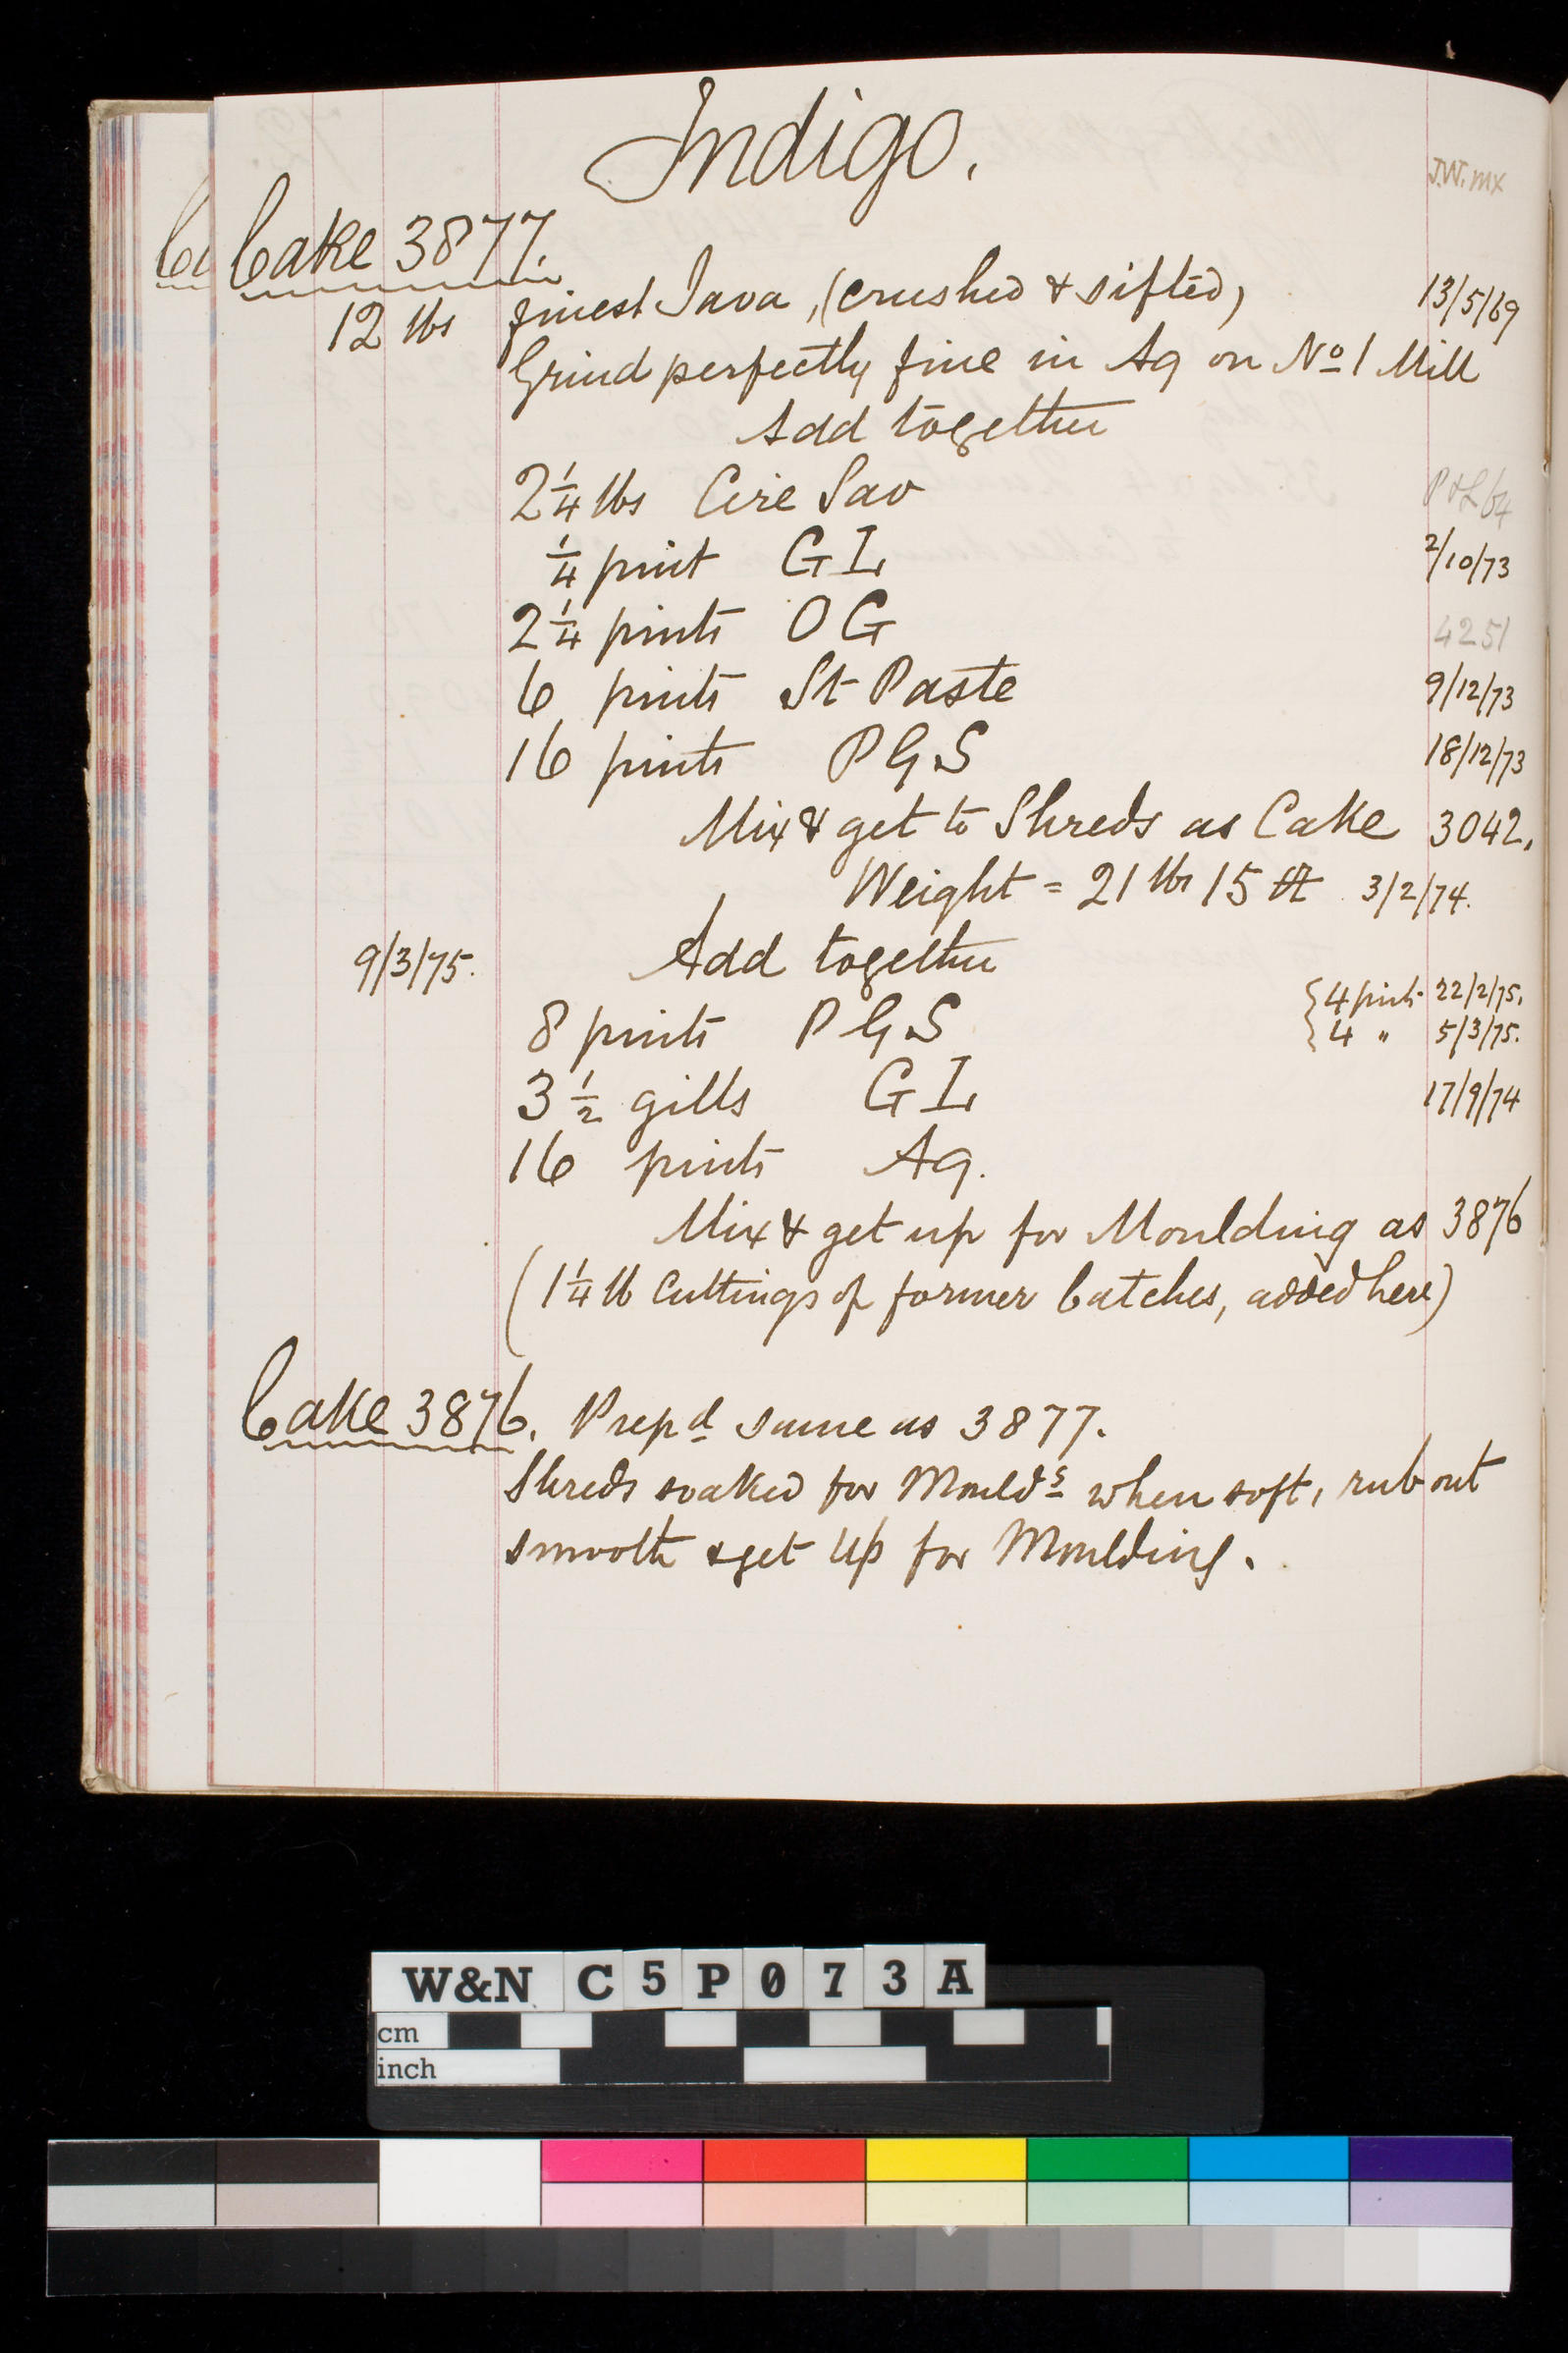 Indigo.
J.W. mx
Cake 3877.
12 lbs finest Java, (crushed & sifted) 13/5/69
Grind perfectly fine in Aq on No 1 Mill
Add together
2 1/4 lbs Cire Sav
1/4 pint GL 2/10/73
2 1/4 pints OG 4251
6 pints St Paste 9/12/73
16 pints PGS 18/12/73
Mix & get to Shreds as Cake 3042.
Weight = 21 lbs 15 3/2/74.
9/3/75. Add together
8 pints PGS {4 pints 22/2/75.
{4 " 5/3/75.
3 1/2 gills GL 17/9/74
16 pints Aq.
Mix & get up for Moulding as 3876
(1 1/4 lb Cuttings of former batches, added here)
Cake 3876. Prepd same as 3877.
Shreds soaked for Moulds when soft, rub out
smooth & get up for Moulding.
W&N C5P073A
cm
inch